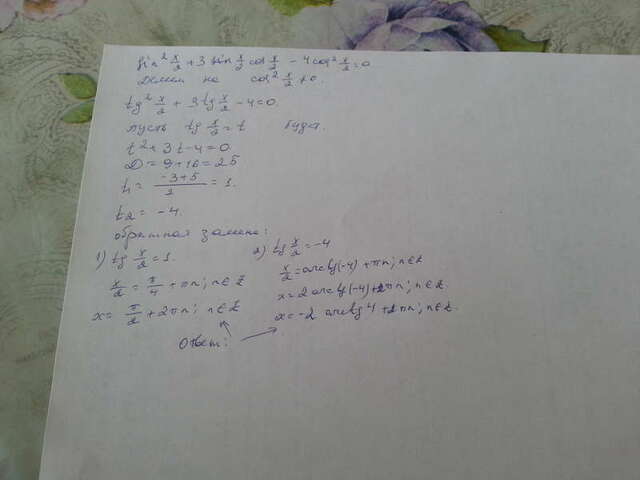 sin² x/2 + 3 sin x/2 cos x/2 - 4cos² x/2 = 0
Делим на cos² x/2 ≠ 0.
tg² x/2 + 3tg x/2 - 4 = 0.
пусть tg x/2 = t
t² + 3t - 4 = 0.
D = 9 + 16 = 25
t₁ = (-3+5)/2 = 1.
t₂ = -4.
обратная замена:
1) tg x/2 = 1.
x/2 = π/4 + πn; n∈Z
x = π/2 + 2πn; n∈Z
2) tg x/2 = -4
x/2 = arctg(-4) + πn; n∈Z
x = 2 arctg(-4) + 2πn; n∈Z.
x = -2 arctg 4 + 2πn; n∈Z.
Ответ: